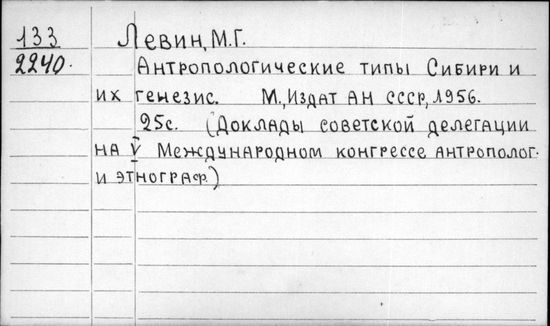 133 Левин, М.Г.
2240. Антропологические типы Сибири и
их генезис. М., Издат АН СССР, 1956.
25с. (Доклады советской делегации
на V Международном конгрессе антрополог.
и этнограф.)